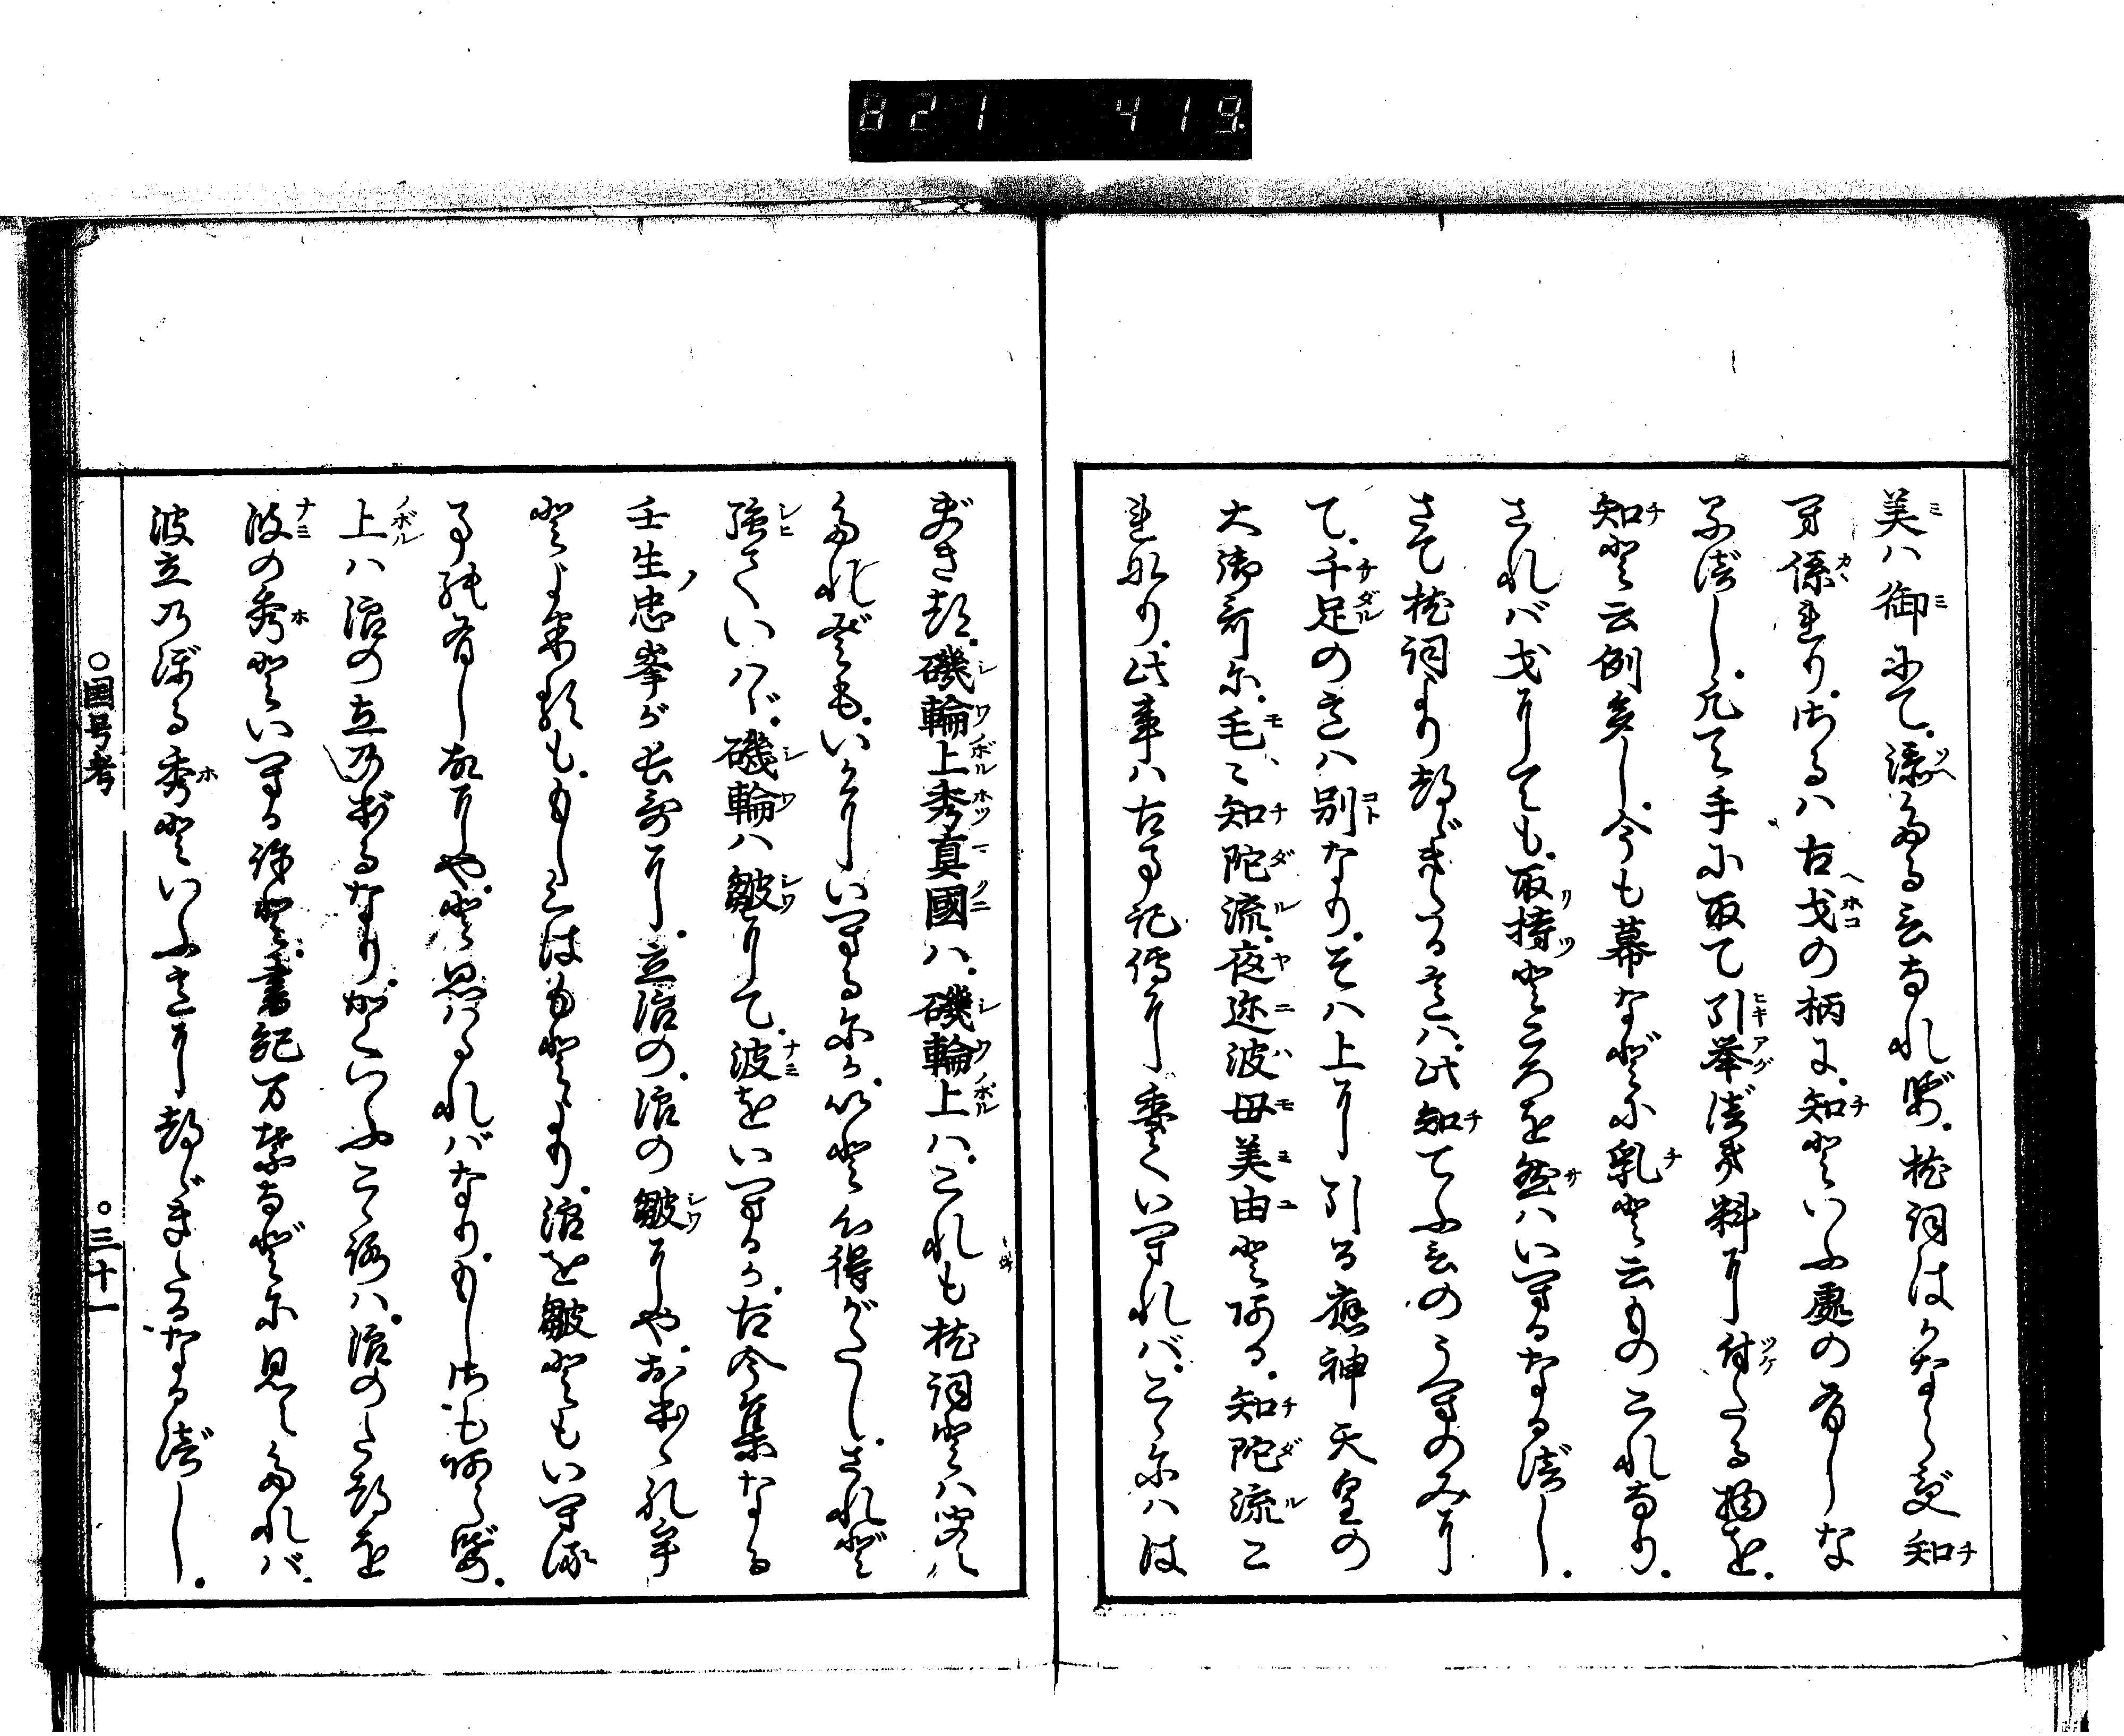 美ハ御にて。添たる言なれば。枕詞はかならず知
へ係れり。さるハ古戈の柄に。知といふ處の有しな
るべし。凡て手に取て引擧べき料に付たる物を。
知と云例多し。今も幕などに乳と云ものこれなり。
されバ戈にしても。取持ところを然ハいへるなるべし。
さて枕詞より都ゞきたる意ハ。此知てふ言のうへのみに
て。千足の意ハ別なり。そハ上に引る應神天皇の
大御哥に。毛ゝ知陀流。夜迩波母美由とある。知陀流こ
れなり。此事ハ古事記傳に委くいへれバ。こゝにハは
ぶきつ。磯輪上秀真國ハ。磯輪上ハ。これも枕詞とハ聞え
たれども。いかにいへるにか。いと心得がたし。されど
強ていハゞ。磯輪ハ皺にて。波をいへるか。古今集なる
壬生ノ忠峯が長哥に。立浪の。浪の皺にや。おぼゝれむ
とよめるも。もしくはもとより。浪を皺ともいへる
事の有し故にや。と思ハるれバなり。もしさもあらば。
上ハ浪の立のぼるなり。かくいふこゝろハ。浪のたつを
波の秀といへる 。書紀万葉などに見えたれバ。
波立のぼる秀といふ意に都ゞきたるなるべし。
○国号考
○三十一
821 419